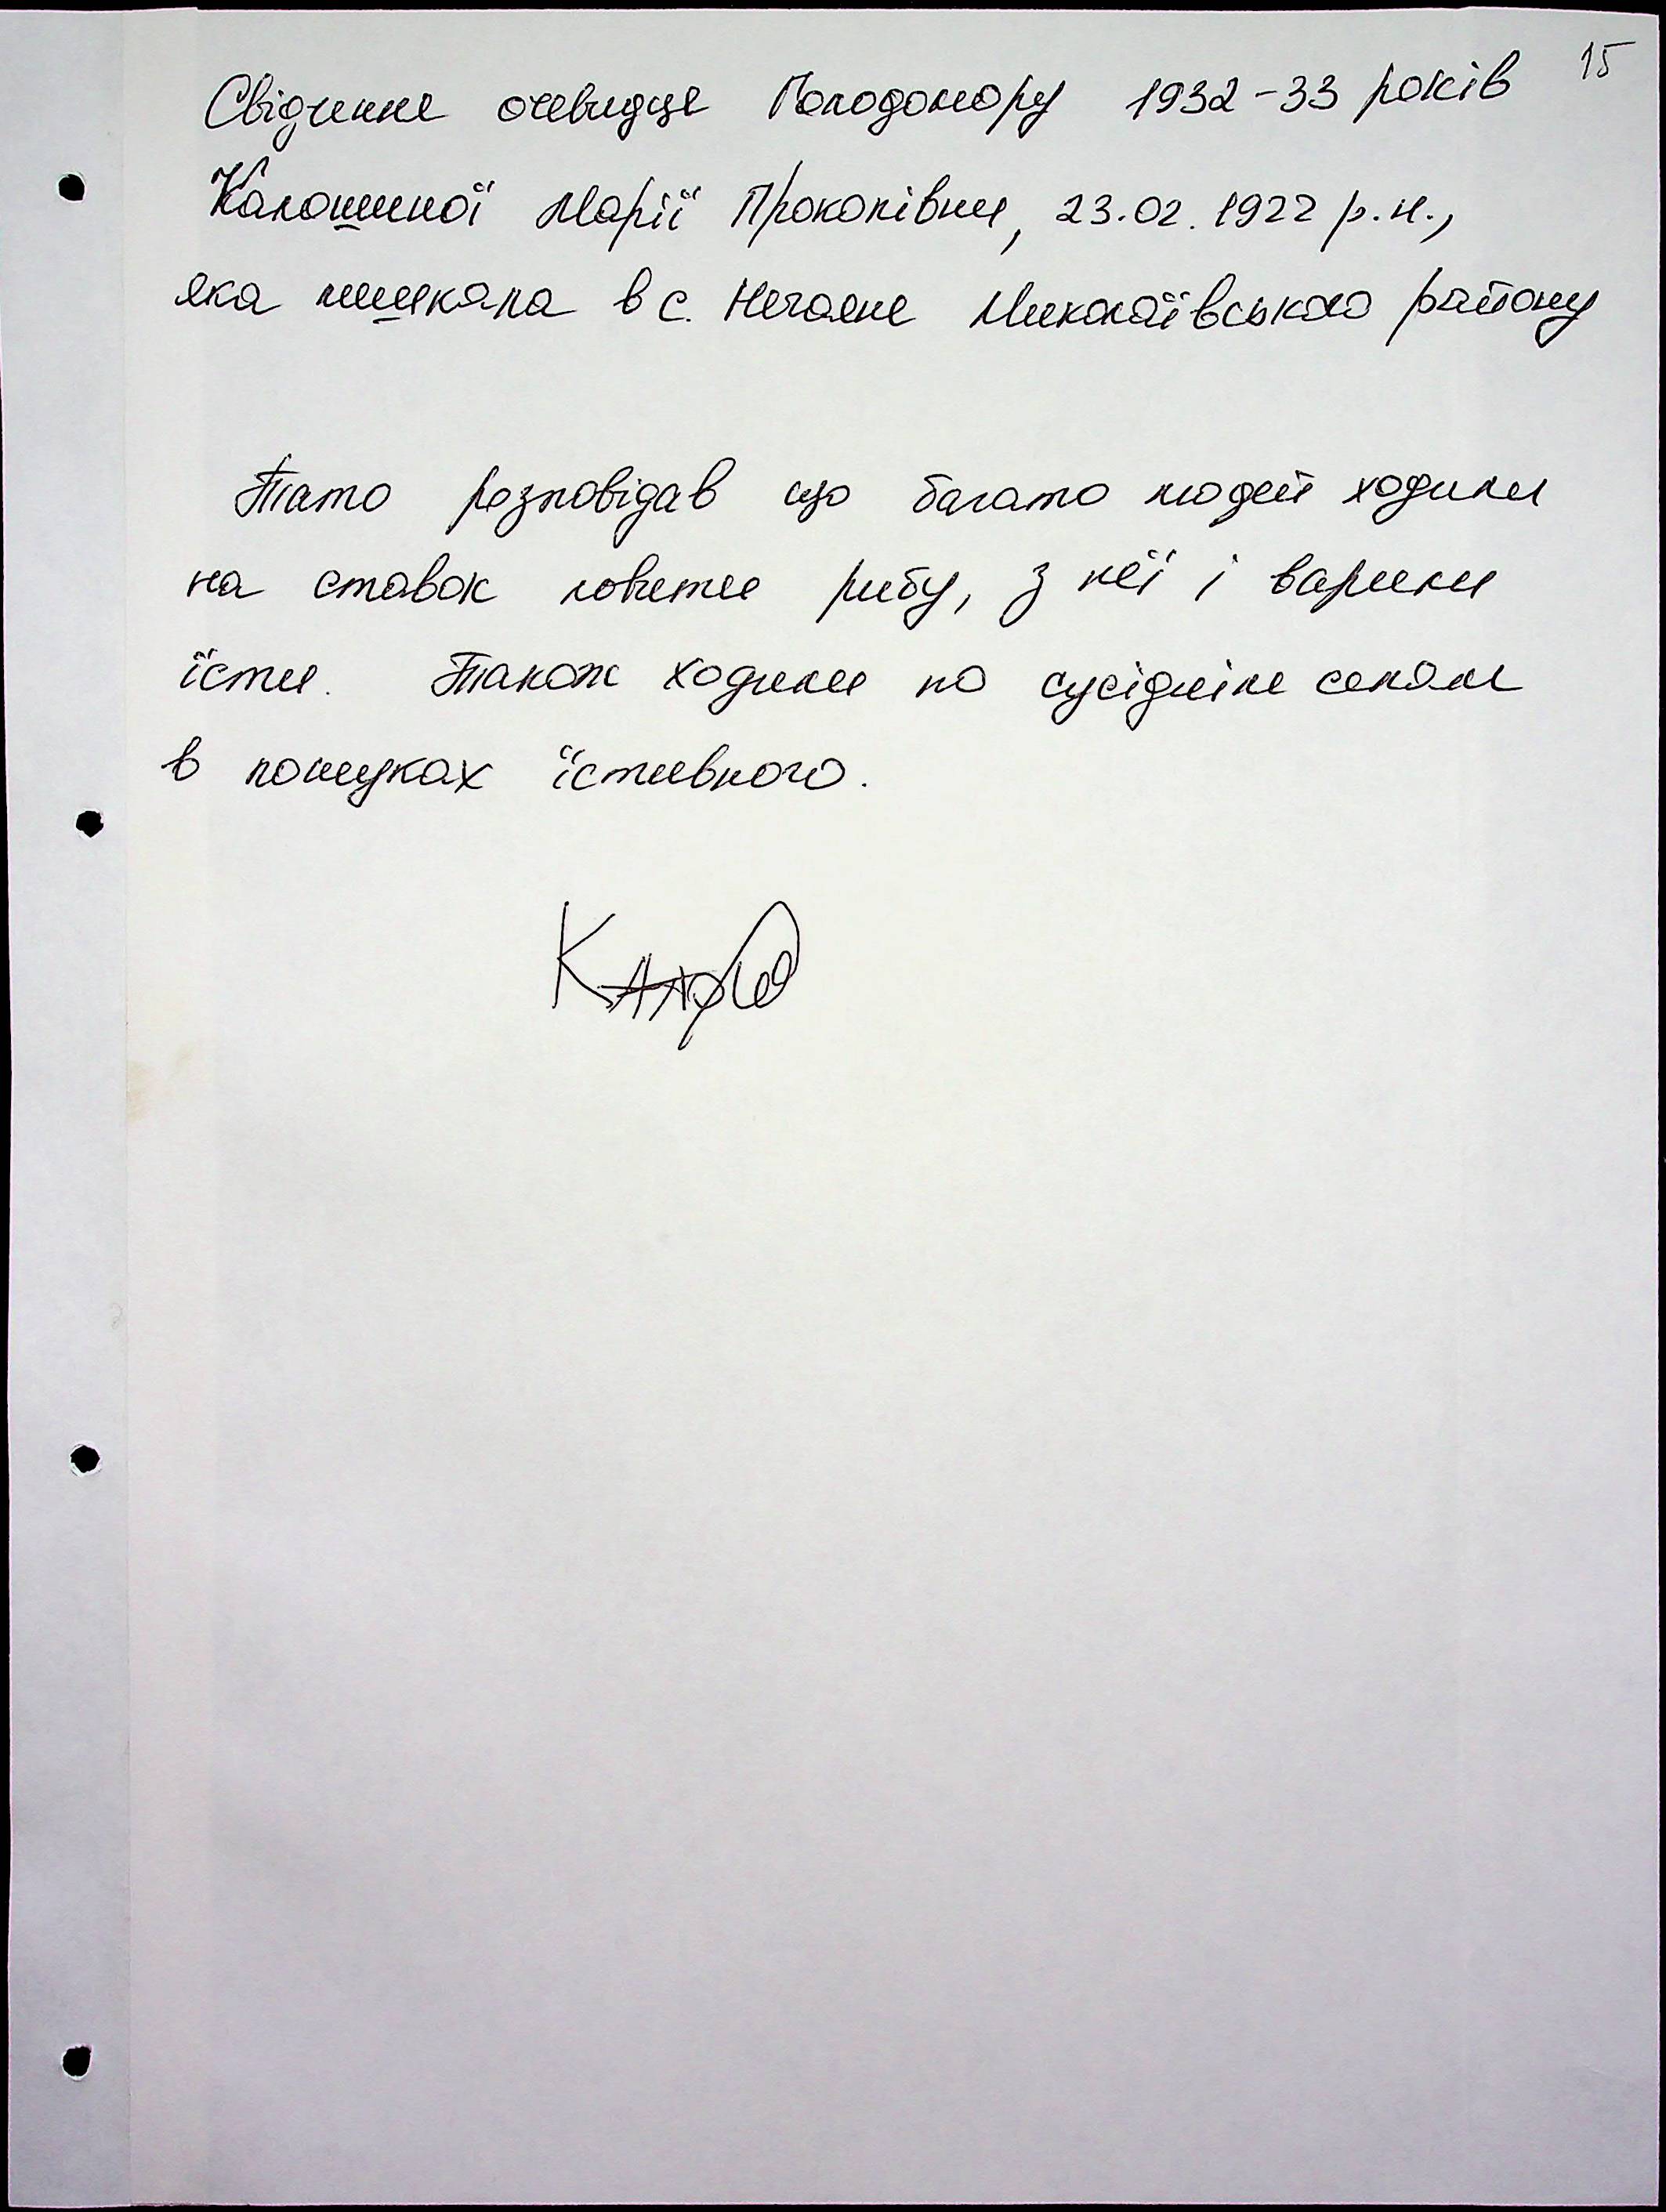 15
Свідчення очевидця Голодомору 1932-33 років
Калошиної Марії Прокопівни, 23.02.1922 р.н.,
яка мешкала в с. Нечаяне Миколаївського району
Тато розповідав що багато людей ходили
на ставок ловити рибу, з неї і варили
їсти. Також ходили по сусіднім селам
в пошуках їстивного.